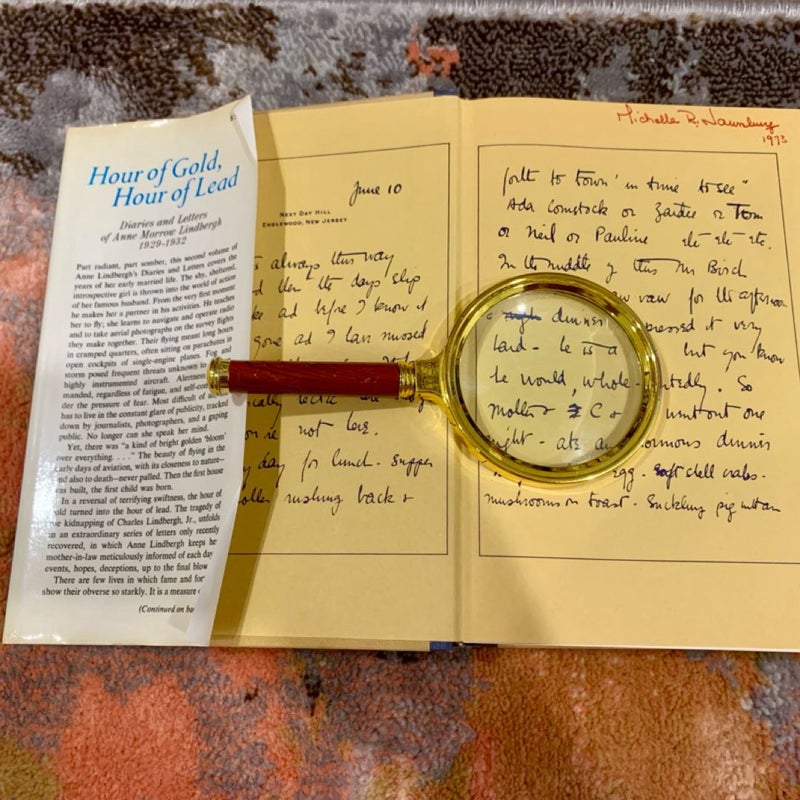 Hour of Gold,
Hour of Lead
Diaries and Letters
of Anne Morrow Lindbergh
1929-1932
Part radiant, part somber, this second volume of
Anne Lindbergh's Diaries and Letters covers the
years of her early married life. The shy, sheltered,
introspective girl is thrown into the world of action
of her famous husband. From the very first moment
he makes her a partner in his activities. He teaches
her to fly; she learns to navigate and operate radio
and to take aerial photographs on the survey flights
they make together. Their flying meant long hours
in cramped quarters, often sitting on parachutes in
open cockpits of single-engine planes. Fog and
storm posed frequent threats unknown to
highly instrumented aircraft. Alertness
manded, regardless of fatigue, and self-con
der the pressure of fear. Most difficult of a
has to live in the constant glare of publicity, tracked
down by journalists, photographers, and a gaping
public. No longer can she speak her mind.
Yet, there was "a kind of bright golden 'bloom'
over everything. . . ." The beauty of flying in the
early days of aviation, with its closeness to nature—
and also to death—never palled. Then the first house
was built, the first child was born.
In a reversal of terrifying swiftness, the hour of
gold turned into the hour of lead. The tragedy of
the kidnapping of Charles Lindbergh, Jr., unfolds
in an extraordinary series of letters only recently
recovered, in which Anne Lindbergh keeps he
mother-in-law meticulously informed of each day
events, hopes, deceptions, up to the final blow
There are few lives in which fame and for
show their obverse so starkly. It is a measure
(Continued on ba
June 10
NEXT DAY HILL
ENGLEWOOD, NEW JERSEY
always this way
the days slip
before I know it
gone and I have missed
not less.
day for lunch. Supper
rushing back +
Michelle R.
1973
forth to town "in time to see"
Ada Comstock or or Tom
or Neil or Pauline etc etc etc.
In the middle of this Mr Birch
for the afternoon
a dinner pressed it very
hard - he is a but you know
he would, whole- tedly. So
Mother + C + went out one
night - ate an ormous dinner
egg. soft shell crabs.
mushrooms on toast. Suckling pig